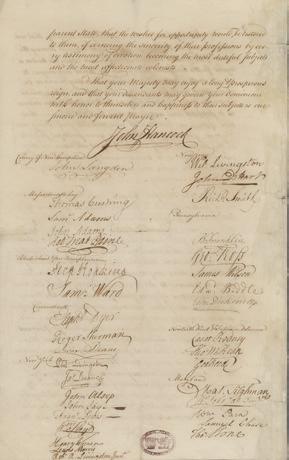 parent State, that the wished for opportunity would be restored
to them, of evincing the sincerity of their professions by eve-
ry testimony of devotion becoming the most dutiful subjects
and the most affectionate colonists.
That your Majesty may enjoy a long & prosperous
reign, and that your descendants may govern your Dominions
with honor to themselves and happiness to their subjects is our
sincere and fervent prayer
John Hancock
Colony of New Hampshire
John Langdon
Massachusetts bay
Thomas Cushing
Saml Adams
John Adams
Robt Treat Paine
Step Hopkins
Sam: Ward
Connecticut
Elipht Dyer
Roger Sherman
Silas Deane
New York
Jas Duane
John Alsop
John Jay
Wm Floyd
Henry Wisner
Lewis Morris
Wil: Livingston
John D Hart
Richd Smith
Pennsylvania
B Franklin
Geo: Ross
James Wilson
Edwd Biddle
John Dickinson
Caesar Rodney
Tho M:Kean
Geo Read
Maryland
Mat. Tilghman
Wm Paca
Samuel Chase
Thos Stone